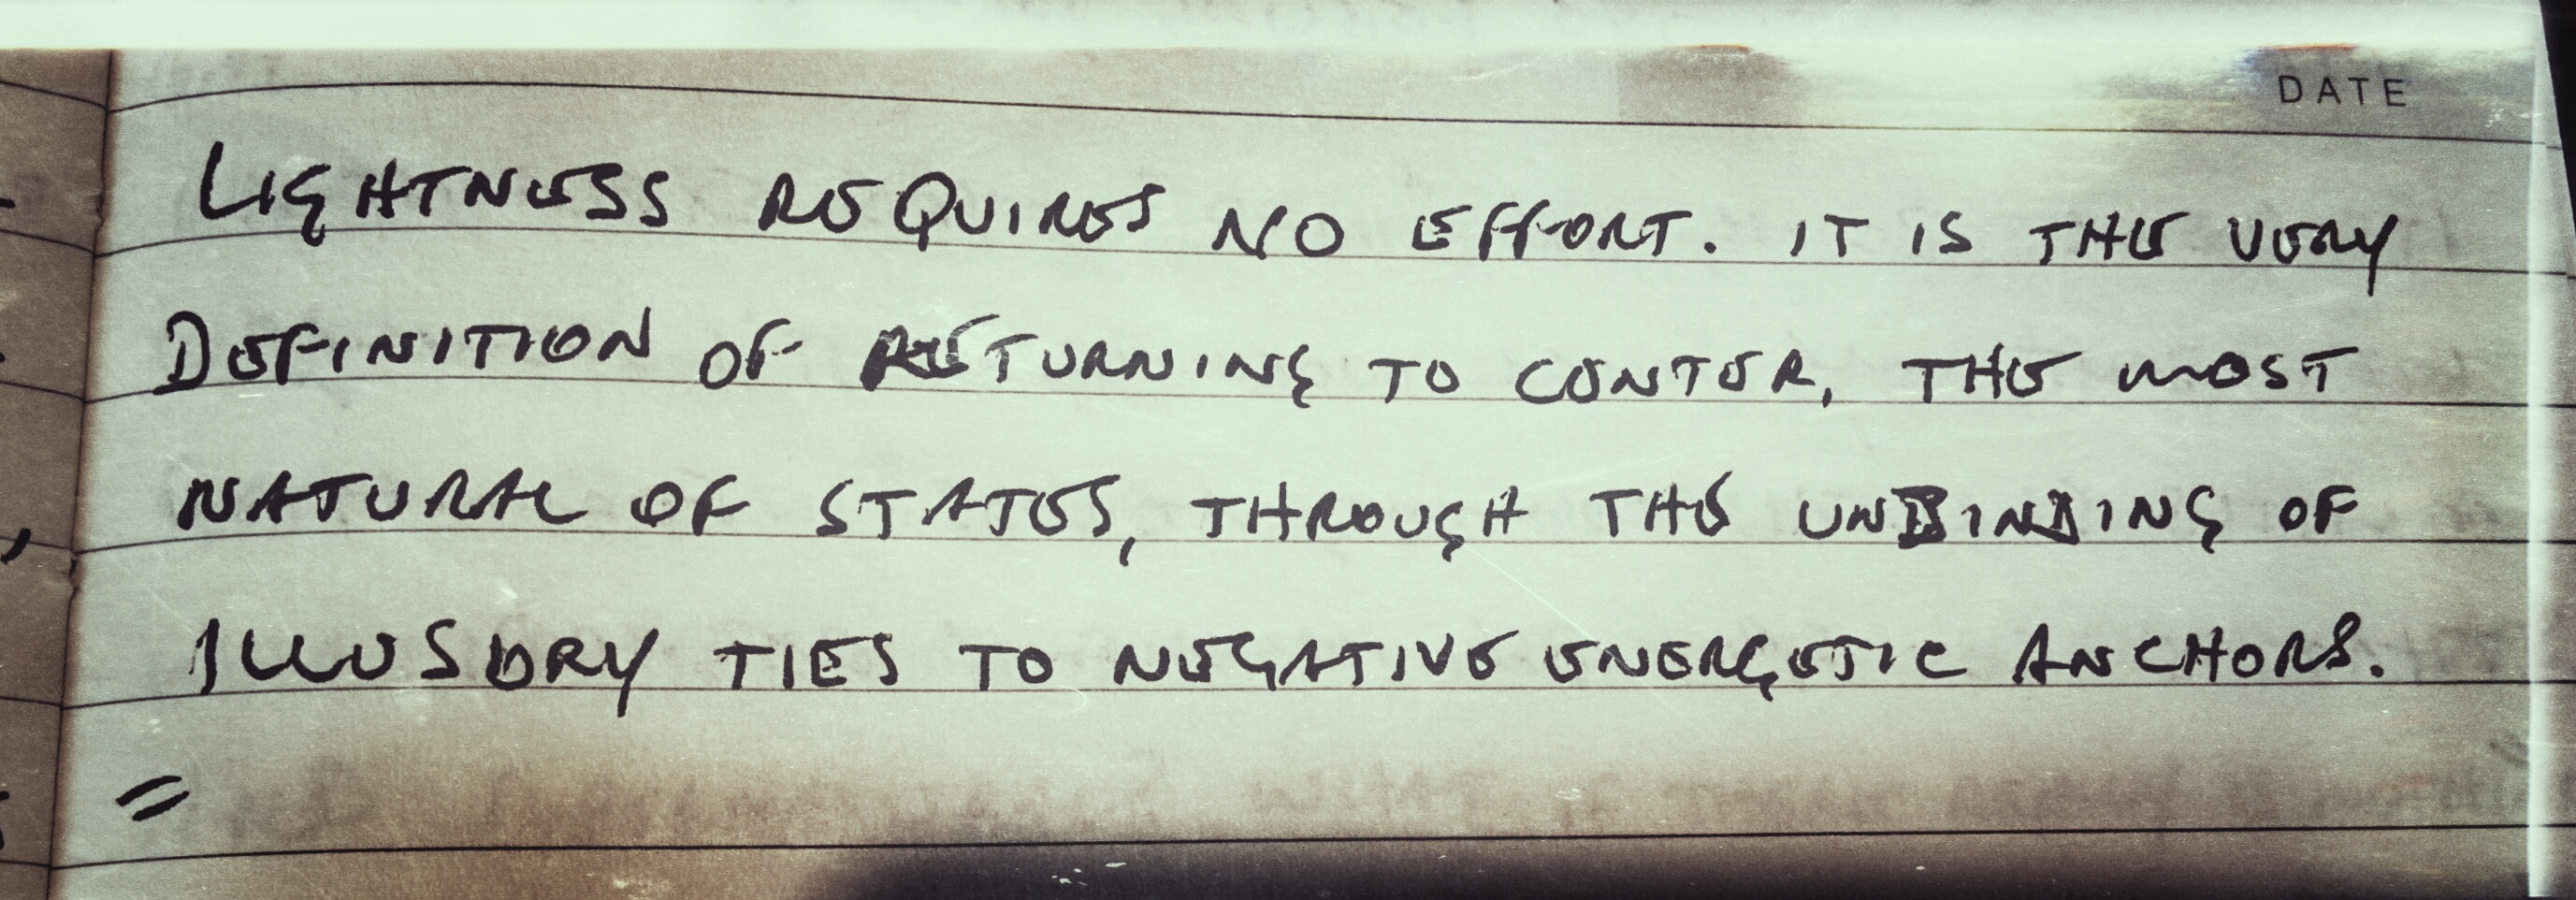 DATE
LIGHTNESS REQUIRES NO EFFORT. IT IS THE VERY
DEFINITION OF RETURNING TO CENTER, THE MOST
NATURAL OF STATES, THROUGH THE UNBINDING OF
ILLUSORY TIES TO NEGATIVE ENERGETIC ANCHORS.
=